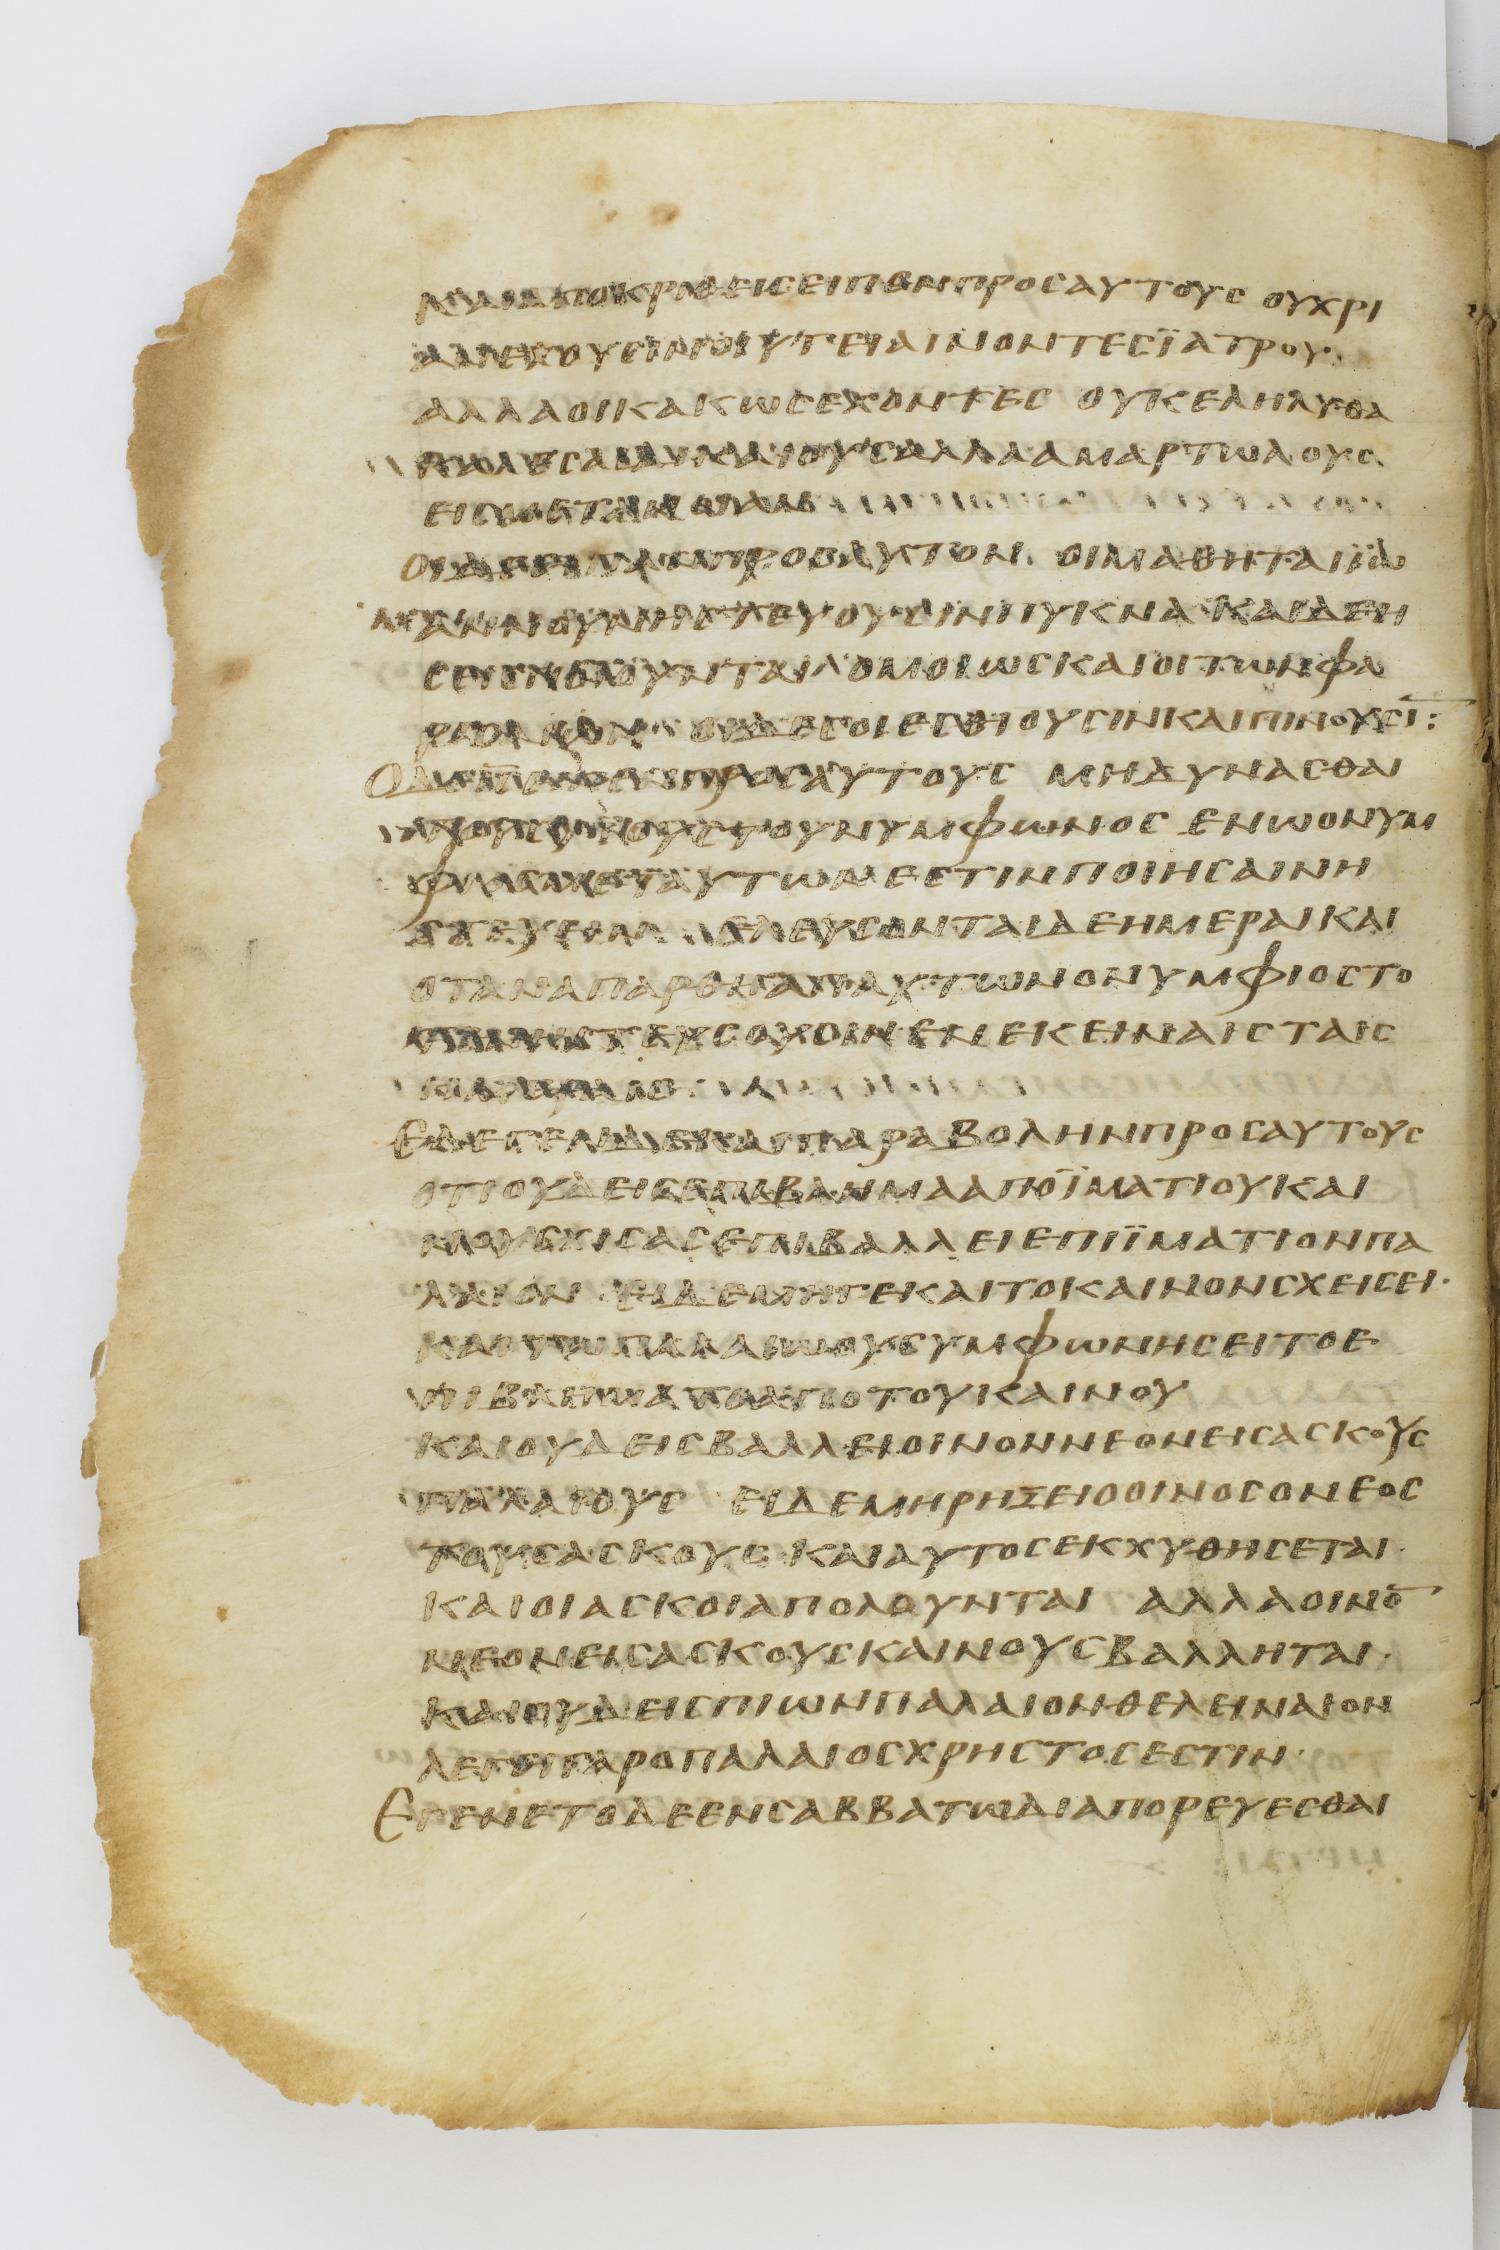 ΚΑΙ ΑΠΟΚΡΙΘΕΙϹ ΕΙΠΕΝ ΠΡΟϹ ΑΥΤΟΥϹ ΟΥ ΧΡΙ
ΑΝ ΕΧΟΥϹΙΝ ΟΙ ΥΓΕΙΑΙΝΟΝΤΕϹ ΪΑΤΡΟΥ
ΑΛΛΑ ΟΙ ΚΑΚΩϹ ΕΧΟΝΤΕϹ ΟΥΚ ΕΛΗΛΥΘΑ
ΚΑΛΕϹΑΙ ΔΙΚΑΙΟΥϹ ΑΛΛΑ ΑΜΑΡΤΩΛΟΥϹ
ΕΙϹ ΜΕΤΑΝΟΙΑΝ
ΟΙ ΔΕ ΕΙΠΑΝ ΠΡΟϹ ΑΥΤΟΝ ΟΙ ΜΑΘΗΤΑΙ ΪΩ
ΑΝΝΟΥ ΝΗϹΤΕΥΟΥϹΙΝ ΠΥΚΝΑ ΚΑΙ ΔΕΗ
ϹΕΙϹ ΠΟΙΟΥΝΤΑΙ ΟΜΟΙΩϹ ΚΑΙ ΟΙ ΤΩΝ ΦΑ
ΡΙϹΑΙΩΝ ΟΙ ΔΕ ϹΟΙ ΕϹΘΙΟΥϹΙΝ ΚΑΙ ΠΙΝΟΥϹΙ̅:
Ο ΔΕ ΙϹ̅ ΕΙΠΕΝ ΠΡΟϹ ΑΥΤΟΥϹ ΜΗ ΔΥΝΑϹΘΑΙ
ΤΟΥ ΝΥΜΦΩΝΟϹ ΕΝ Ω Ο ΝΥΜ
ΦΙΟϹ ΜΕΤ ΑΥΤΩΝ ΕϹΤΙΝ ΠΟΙΗϹΑΙ ΝΗ
ϹΤΕΥϹΑΙ ΕΛΕΥϹΟΝΤΑΙ ΔΕ ΗΜΕΡΑΙ ΚΑΙ
ΟΤΑΝ ΑΠΑΡΘΗ ΑΠ ΑΥΤΩΝ Ο ΝΥΜΦΙΟϹ ΤΟ
ΤΕ ΝΗϹΤΕΥϹΟΥϹΙΝ ΕΝ ΕΚΕΙΝΑΙϹ ΤΑΙϹ
ΗΜΕΡΑΙϹ
ΕΛΕΓΕΝ ΔΕ ΚΑΙ ΠΑΡΑΒΟΛΗΝ ΠΡΟϹ ΑΥΤΟΥϹ
ΟΤΙ ΟΥΔΕΙϹ ΕΠΙΒΛΗΜΑ ΑΠΟ ΪΜΑΤΙΟΥ ΚΑΙ
ΝΟΥ ϹΧΙϹΑϹ ΕΠΙΒΑΛΛΕΙ ΕΠΙ ΪΜΑΤΙΟΝ ΠΑ
ΛΑΙΟΝ ΕΙ ΔΕ ΜΗΓΕ ΚΑΙ ΤΟ ΚΑΙΝΟΝ ϹΧΕΙϹΕΙ
ΚΑΙ ΤΩ ΠΑΛΑΙΩ ΟΥ ϹΥΜΦΩΝΗϹΕΙ ΤΟ Ε
ΠΙΒΛΗΜΑ ΤΟ ΑΠΟ ΤΟΥ ΚΑΙΝΟΥ
ΚΑΙ ΟΥΔΕΙϹ ΒΑΛΛΕΙ ΟΙΝΟΝ ΝΕΟΝ ΕΙϹ ΑϹΚΟΥϹ
ΠΑΛΑΙΟΥϹ ΕΙ ΔΕ ΜΗ ΡΗΞΕΙ Ο ΟΙΝΟϹ Ο ΝΕΟϹ
ΤΟΥϹ ΑϹΚΟΥϹ ΚΑΙ ΑΥΤΟϹ ΕΚΧΥΘΗϹΕΤΑΙ
ΚΑΙ ΟΙ ΑϹΚΟΙ ΑΠΟΛΟΥΝΤΑΙ ΑΛΛΑ ΟΙΝΟ̅
ΝΕΟΝ ΕΙϹ ΑϹΚΟΥϹ ΚΑΙΝΟΥϹ ΒΑΛΛΗΤΑΙ
ΚΑΙ ΟΥΔΕΙϹ ΠΙΩΝ ΠΑΛΑΙΟΝ ΘΕΛΕΙ ΝΑΙΟΝ
ΛΕΓΕΙ ΓΑΡ Ο ΠΑΛΑΙΟϹ ΧΡΗϹΤΟϹ ΕϹΤΙΝ
ΕΓΕΝΕΤΟ ΔΕ ΕΝ ϹΑΒΒΑΤΩ ΔΙΑΠΟΡΕΥΕϹΘΑΙ